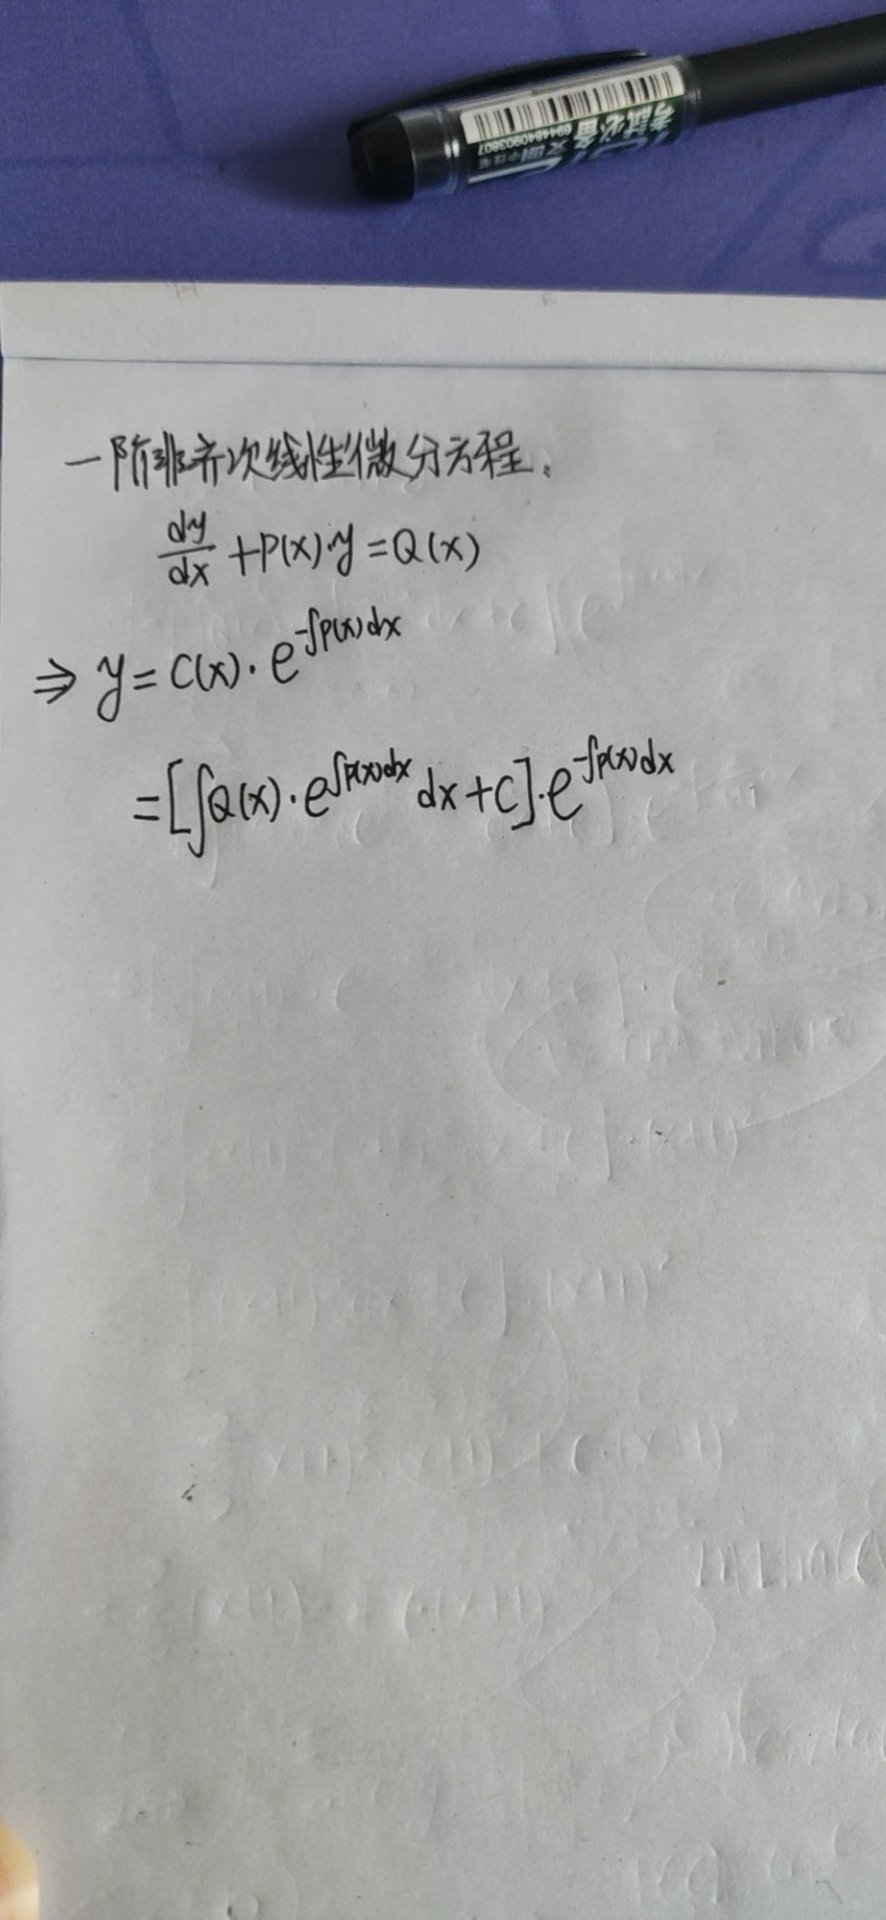 考試必备
6944840903807
一阶非齐次线性微分方程。
dy/dx + P(x)·y = Q(x)
⇒ y = C(x)·e^{-∫P(x)dx}
= [∫Q(x)·e^{∫P(x)dx} dx + C]·e^{-∫P(x)dx}